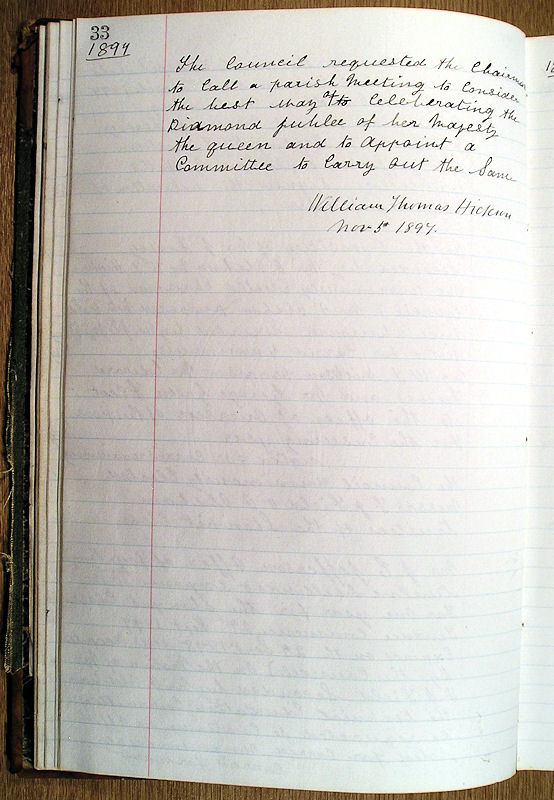 33
1897
The Council requested the Chairman
to Call a parish Meeting to Consider
the best way of to Celeberating the
Diamond jubilee of her Majesty
the queen and to Appoint a
Committee to Carry out the Same
William Thomas Hickson
Nov 5th 1897.